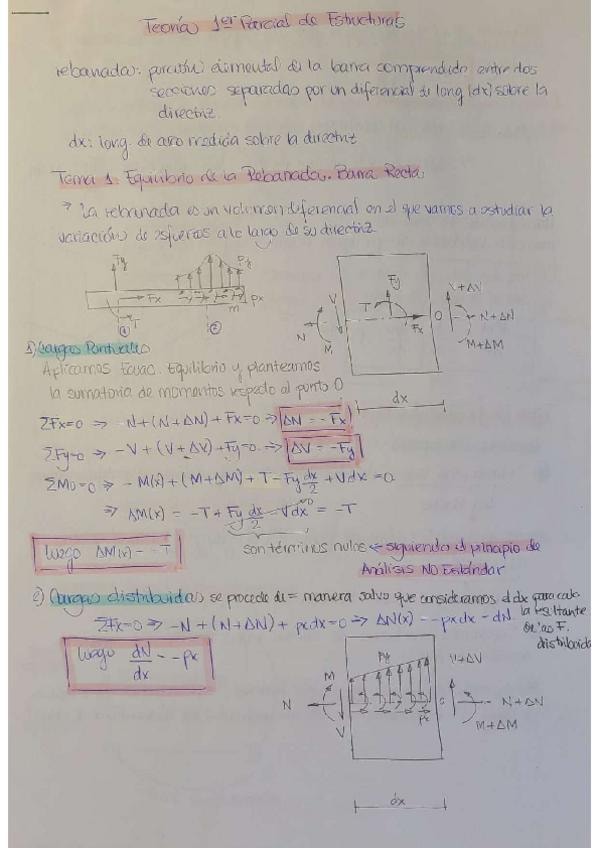 Teoría 1er Parcial de Estructuras
rebanada: porción elemental de la barra comprendida entre dos
secciones separadas por un diferencial de long (dx) sobre la
directriz.
dx: long. de arco medida sobre la directriz
Tema 1. Equilibrio de la Rebanada. Barra Recta
→ La rebanada es un volumen diferencial en el que vamos a estudiar la
variación de esfuerzos a lo largo de su directriz.
Fy Py
Fx m px
T
① ②
V Fy V+ΔV
T O N+ΔN
N Fx
M M+ΔM
dx
1) Cargas Puntuales
Aplicamos Ecuac. Equilibrio y planteamos
la sumatoria de momentos respecto al punto O
ΣFx=0 ⇒ -N+(N+ΔN)+Fx=0 ⇒ ΔN = -Fx
ΣFy=0 ⇒ -V+(V+ΔV)+Fy=0 ⇒ ΔV = -Fy
ΣMo=0 ⇒ -M(x)+(M+ΔM)+T-Fy dx/2 +Vdx =0
⇒ ΔM(x) = -T + Fy dx/2 - Vdx = -T
luego ΔM(x) = -T
son términos nulos ← siguiendo el principio de
Análisis NO Estándar
2) Cargas distribuidas se procede de = manera salvo que consideramos el dx para
la resultante
F.
distribuida
ΣFx=0 ⇒ -N + (N+ΔN) + pxdx=0 ⇒ ΔN(x) = -pxdx = dN
luego dN/dx = -px
Py V+ΔV
M
N N+ΔN
V px M+ΔM
dx